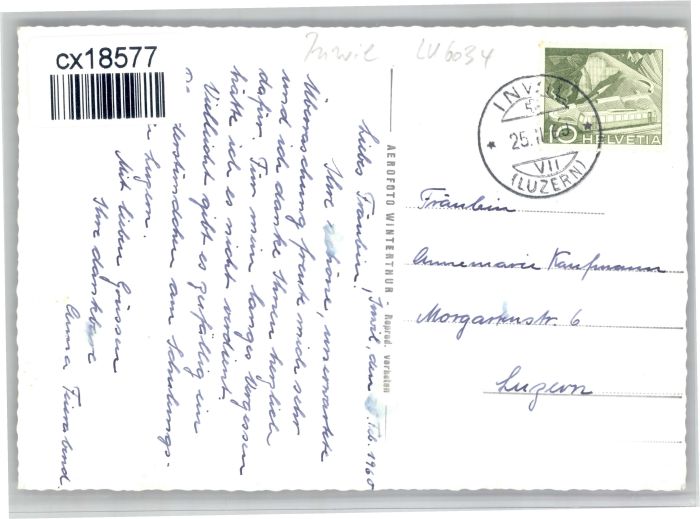 cx18577
Inwil LU 6034
INWIL
25.II.
VII
(LUZERN)
10 HELVETIA
AEROFOTO WINTERTHUR Reprod. verboten
Inwil, den Feb. 1960
Liebes Fräulein,
Ihre schöne, unerwartete
Überraschung freute mich sehr
und ich danke Ihnen herzlich
dafür. Für mein langes Vergessen
hätte ich es nicht verdient.
Vielleicht gibt es gefällig ein
am Schulungs-
in Luzern.
Mit lieben Grüssen
Ihre dankbare
Anna Feierabend.
Fräulein
Annemarie Kaufmann
Morgartenstr. 6
Luzern